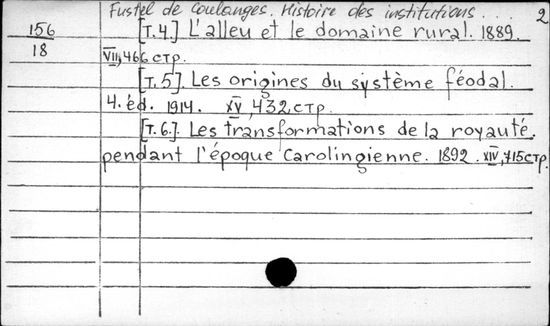 Fustel de Coulanges. Histoire des institutions . . . 2
156
18
[T.4.] L'alleu et le domaine rural. 1889.
VII, 466 стр.
[T.5] Les origines du système féodal.
4. éd. 1914. XV, 432 стр.
[T.6.] Les transformations de la royauté
pendant l'époque Carolingienne. 1892. XIV, 715 стр.